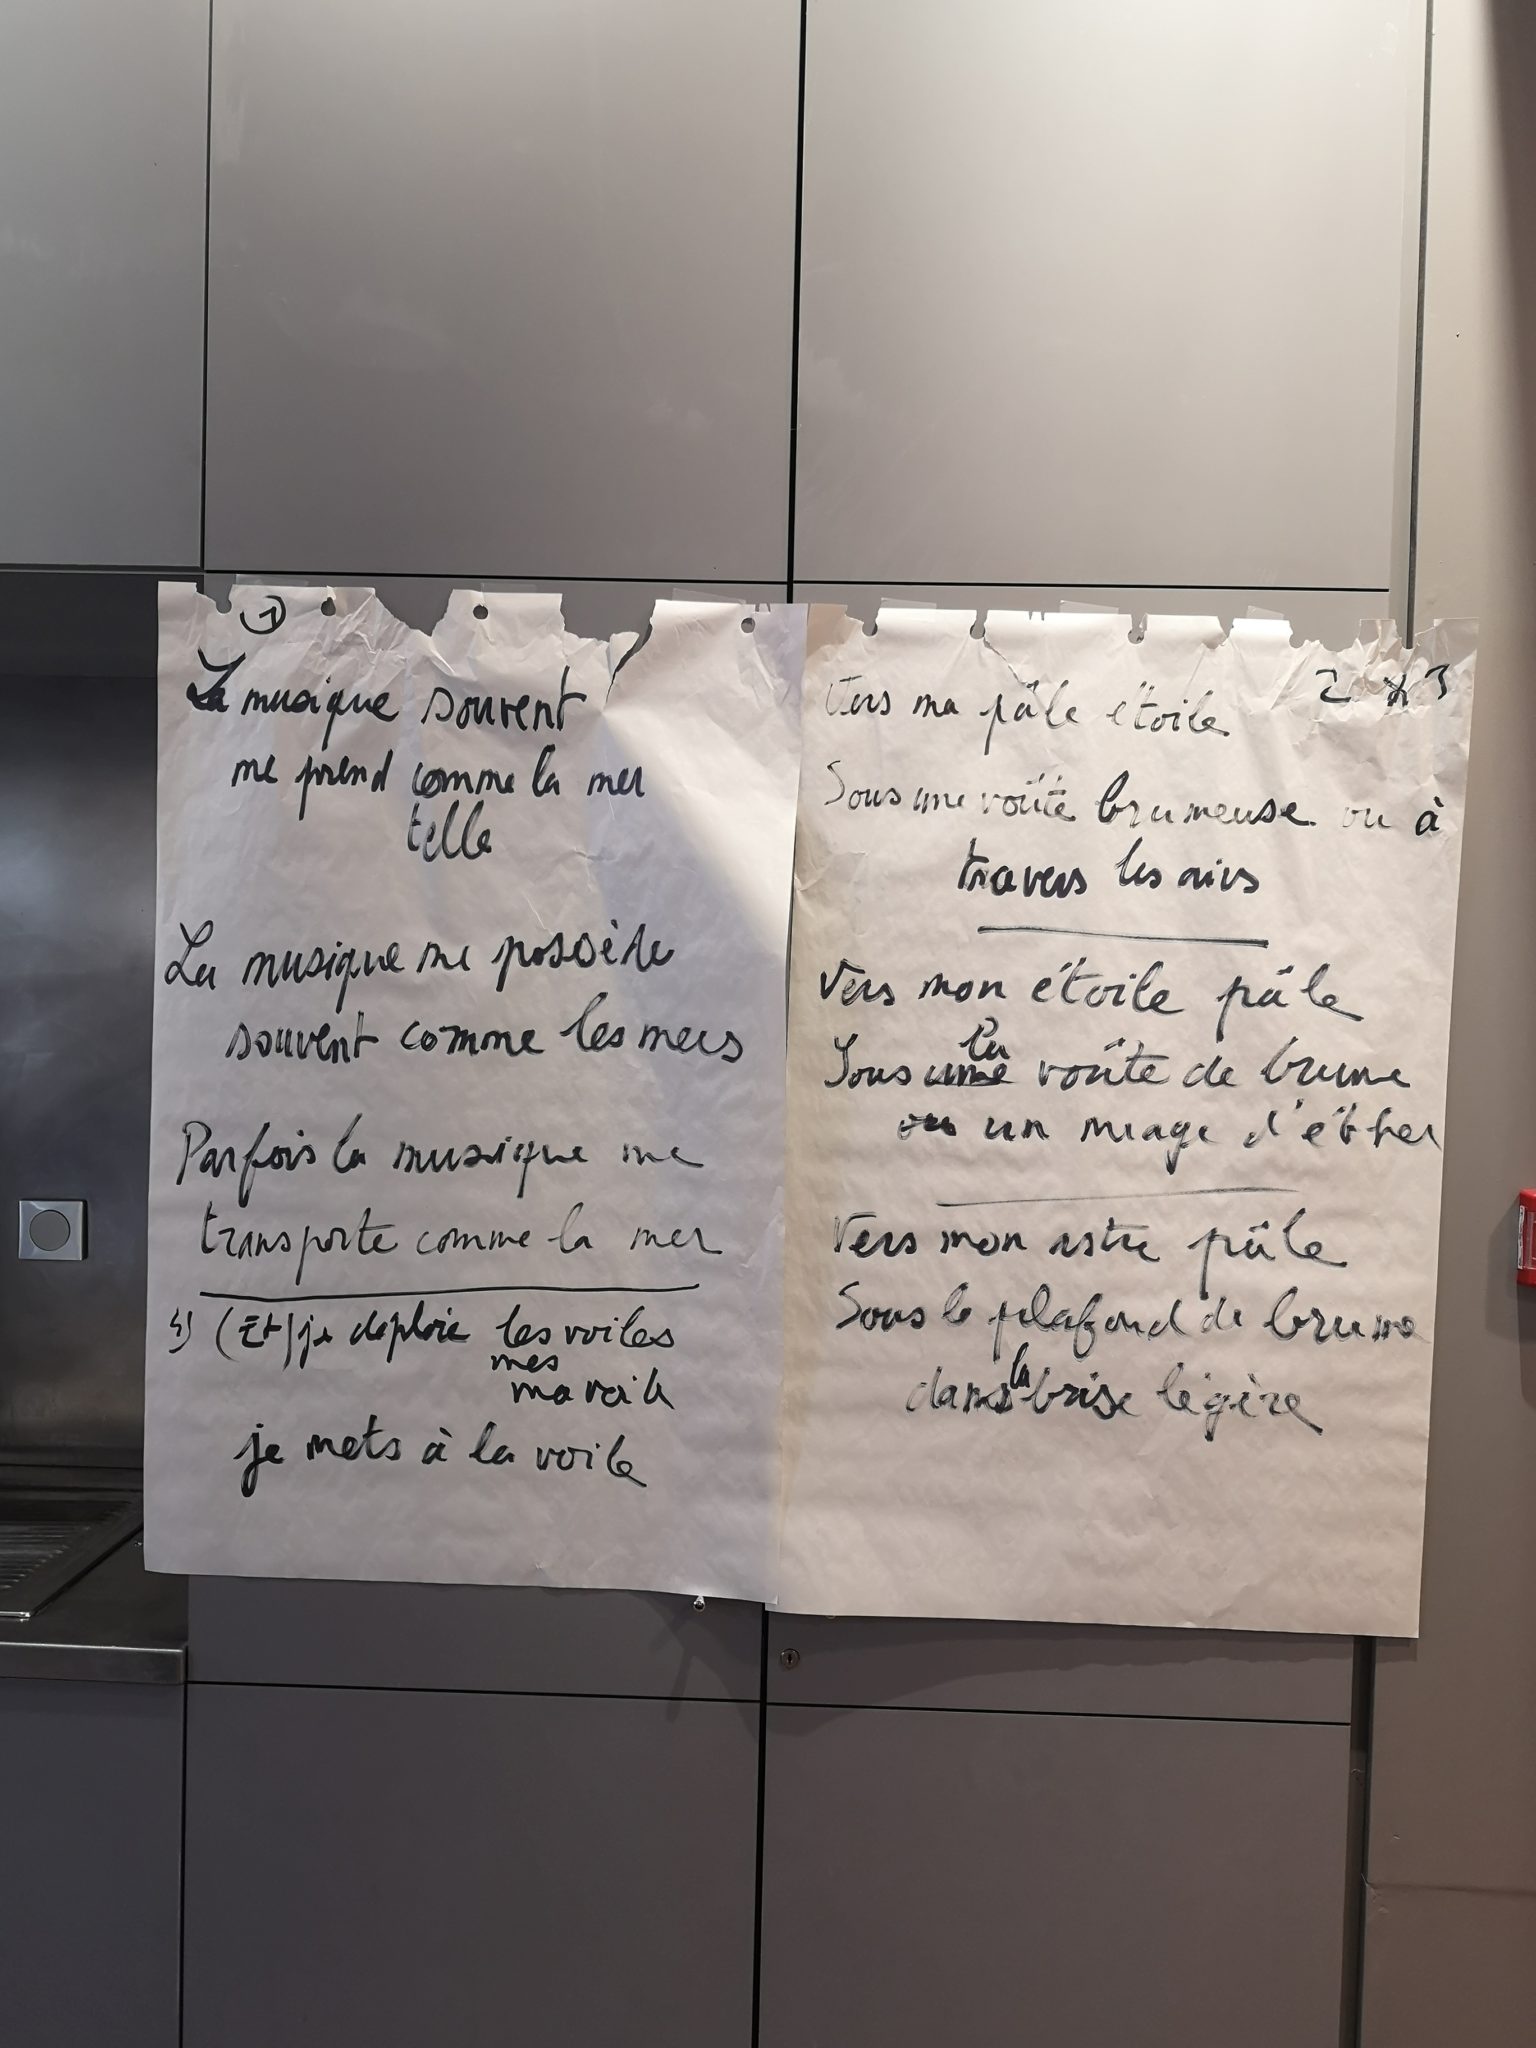 1
La musique souvent
me prend comme la mer
telle
La musique me possède
souvent comme les mers
Parfois la musique me
transporte comme la mer
4) (Et) je deploie les voiles
mes
ma voile
je mets à la voile
2 3
Vers ma pâle étoile
Sous une voûte brumeuse ou à
travers les airs
Vers mon étoile pâle
la
Sous une voûte de brume
ou un nuage d'éther
Vers mon astre pâle
Sous le plafond de brume
la
dans brise légère